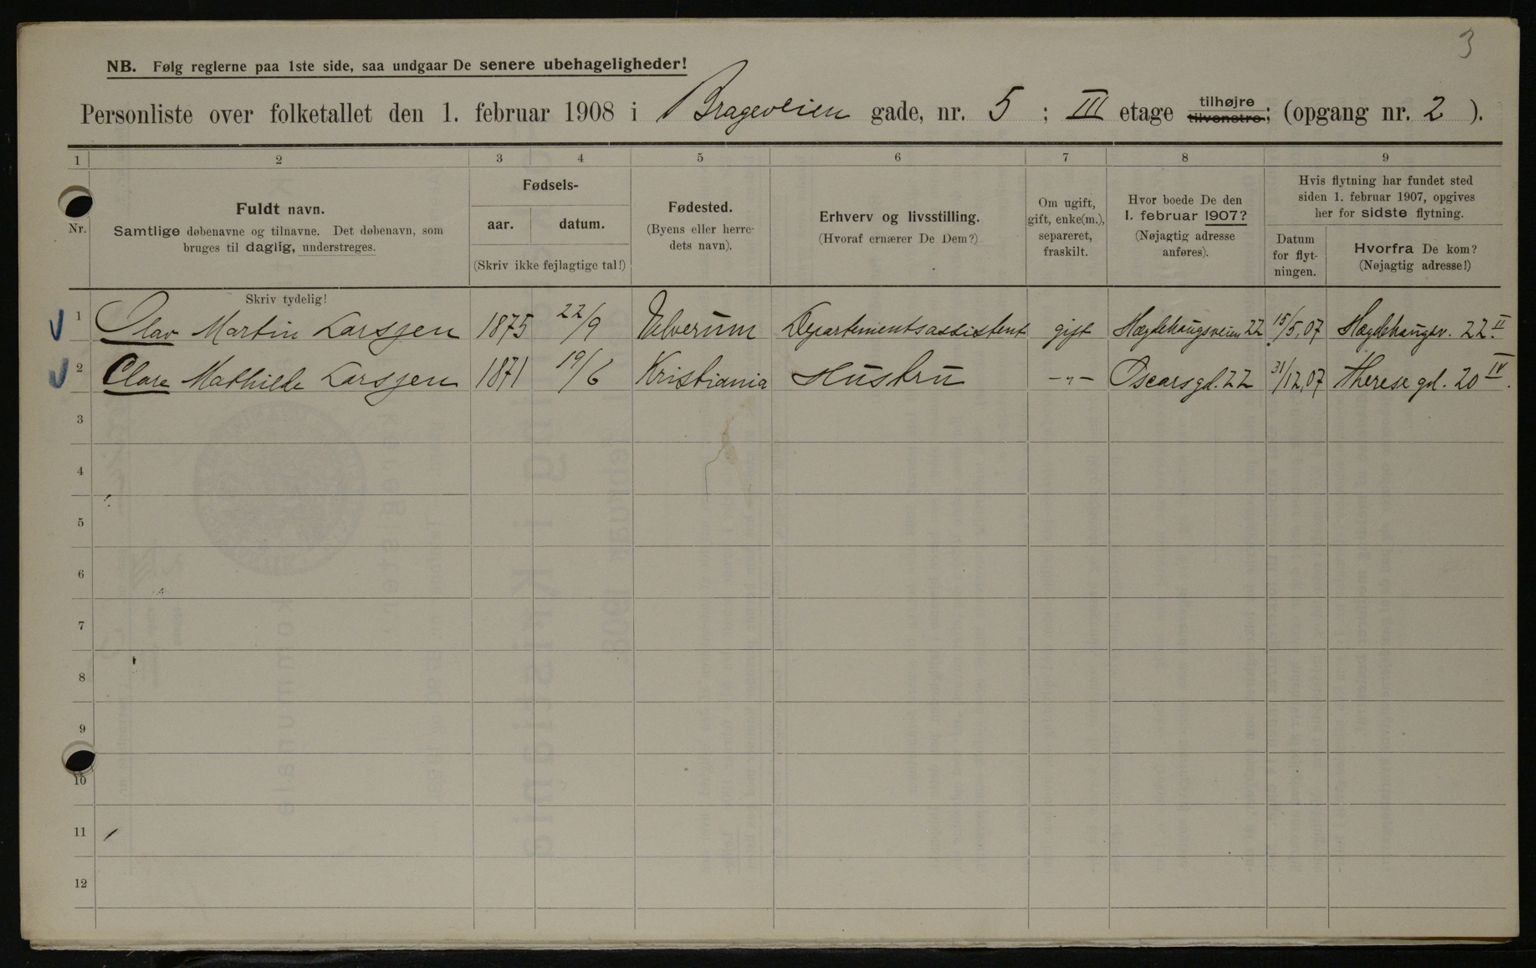 3
NB. Følg reglerne paa 1ste side, saa undgaar De senere ubehageligheder!
Personliste over folketallet den 1. februar 1908 i Brageveien gade, nr. 5 ; III etage tilhøjre tilvenstre; (opgang nr. 2 ).
1 2 3 4 5 6 7 8 9
Nr.
Fuldt navn.
Samtlige døbenavne og tilnavne. Det døbenavn, som
bruges til daglig, understreges.
Fødsels-
aar. datum.
(Skriv ikke fejlagtige tal!)
Fødested.
(Byens eller herre-
dets navn).
Erhverv og livsstilling.
(Hvoraf ernærer De Dem?)
Om ugift,
gift, enke(m.),
separeret,
fraskilt.
Hvor boede De den
1. februar 1907?
(Nøjagtig adresse
anføres).
Hvis flytning har fundet sted
siden 1. februar 1907, opgives
her for sidste flytning.
Datum
for flyt-
ningen.
Hvorfra De kom?
(Nøjagtig adresse!)
Skriv tydelig!
1 Olav Martin Larssen 1875 22/9 Elverum Departementsassistent gift Hægdehaugsveien 22 15/5,07 Hægdehaugsv. 22 II.
2 Clara Mathilde Larssen 1871 19/6 Kristiania Hustru -"- Oscarsgd. 22 31/12,07 Therese gd. 20 IV.
3
4
5
6
7
8
9
10
11
12